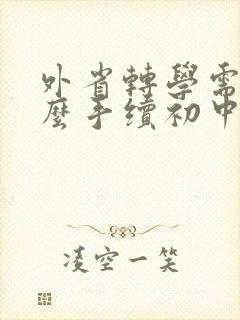 外省轉學需
麼手續初中
凌空一笑